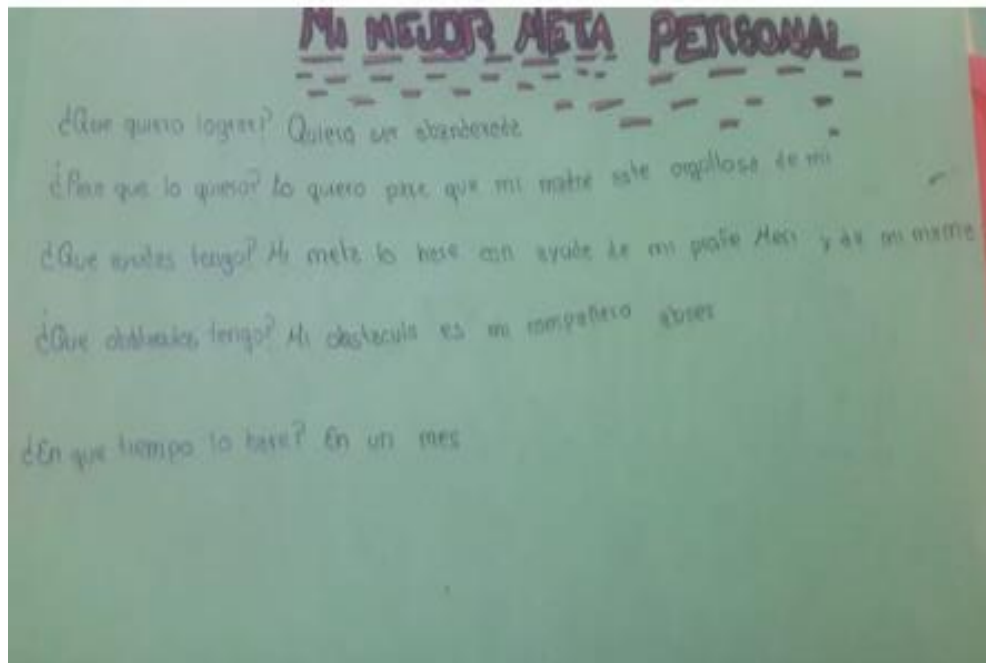 MI MEJOR META PERSONAL
¿Que quiero lograr? Quiero ser abanderada
¿Para que lo quiero? Lo quiero para que mi madre este orgullosa de mi
¿Que ayudas tengo? Mi meta la hare con ayuda de mi profe Meri y de mi mama
¿Que obstaculos tengo? Mi obstaculo es mi compañero
¿En que tiempo lo hare? En un mes